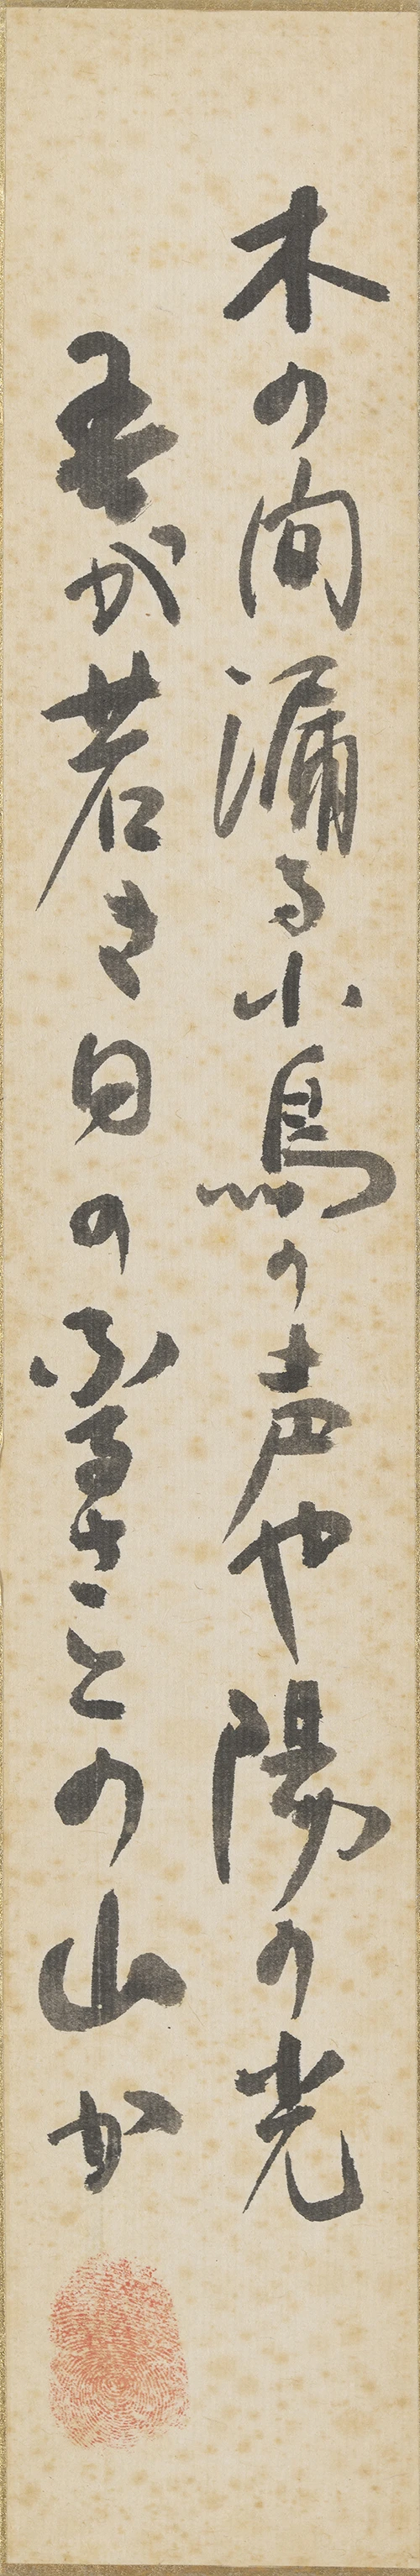 木の間漏る小鳥の声や陽の光
吾が若き日のふるさとの山か